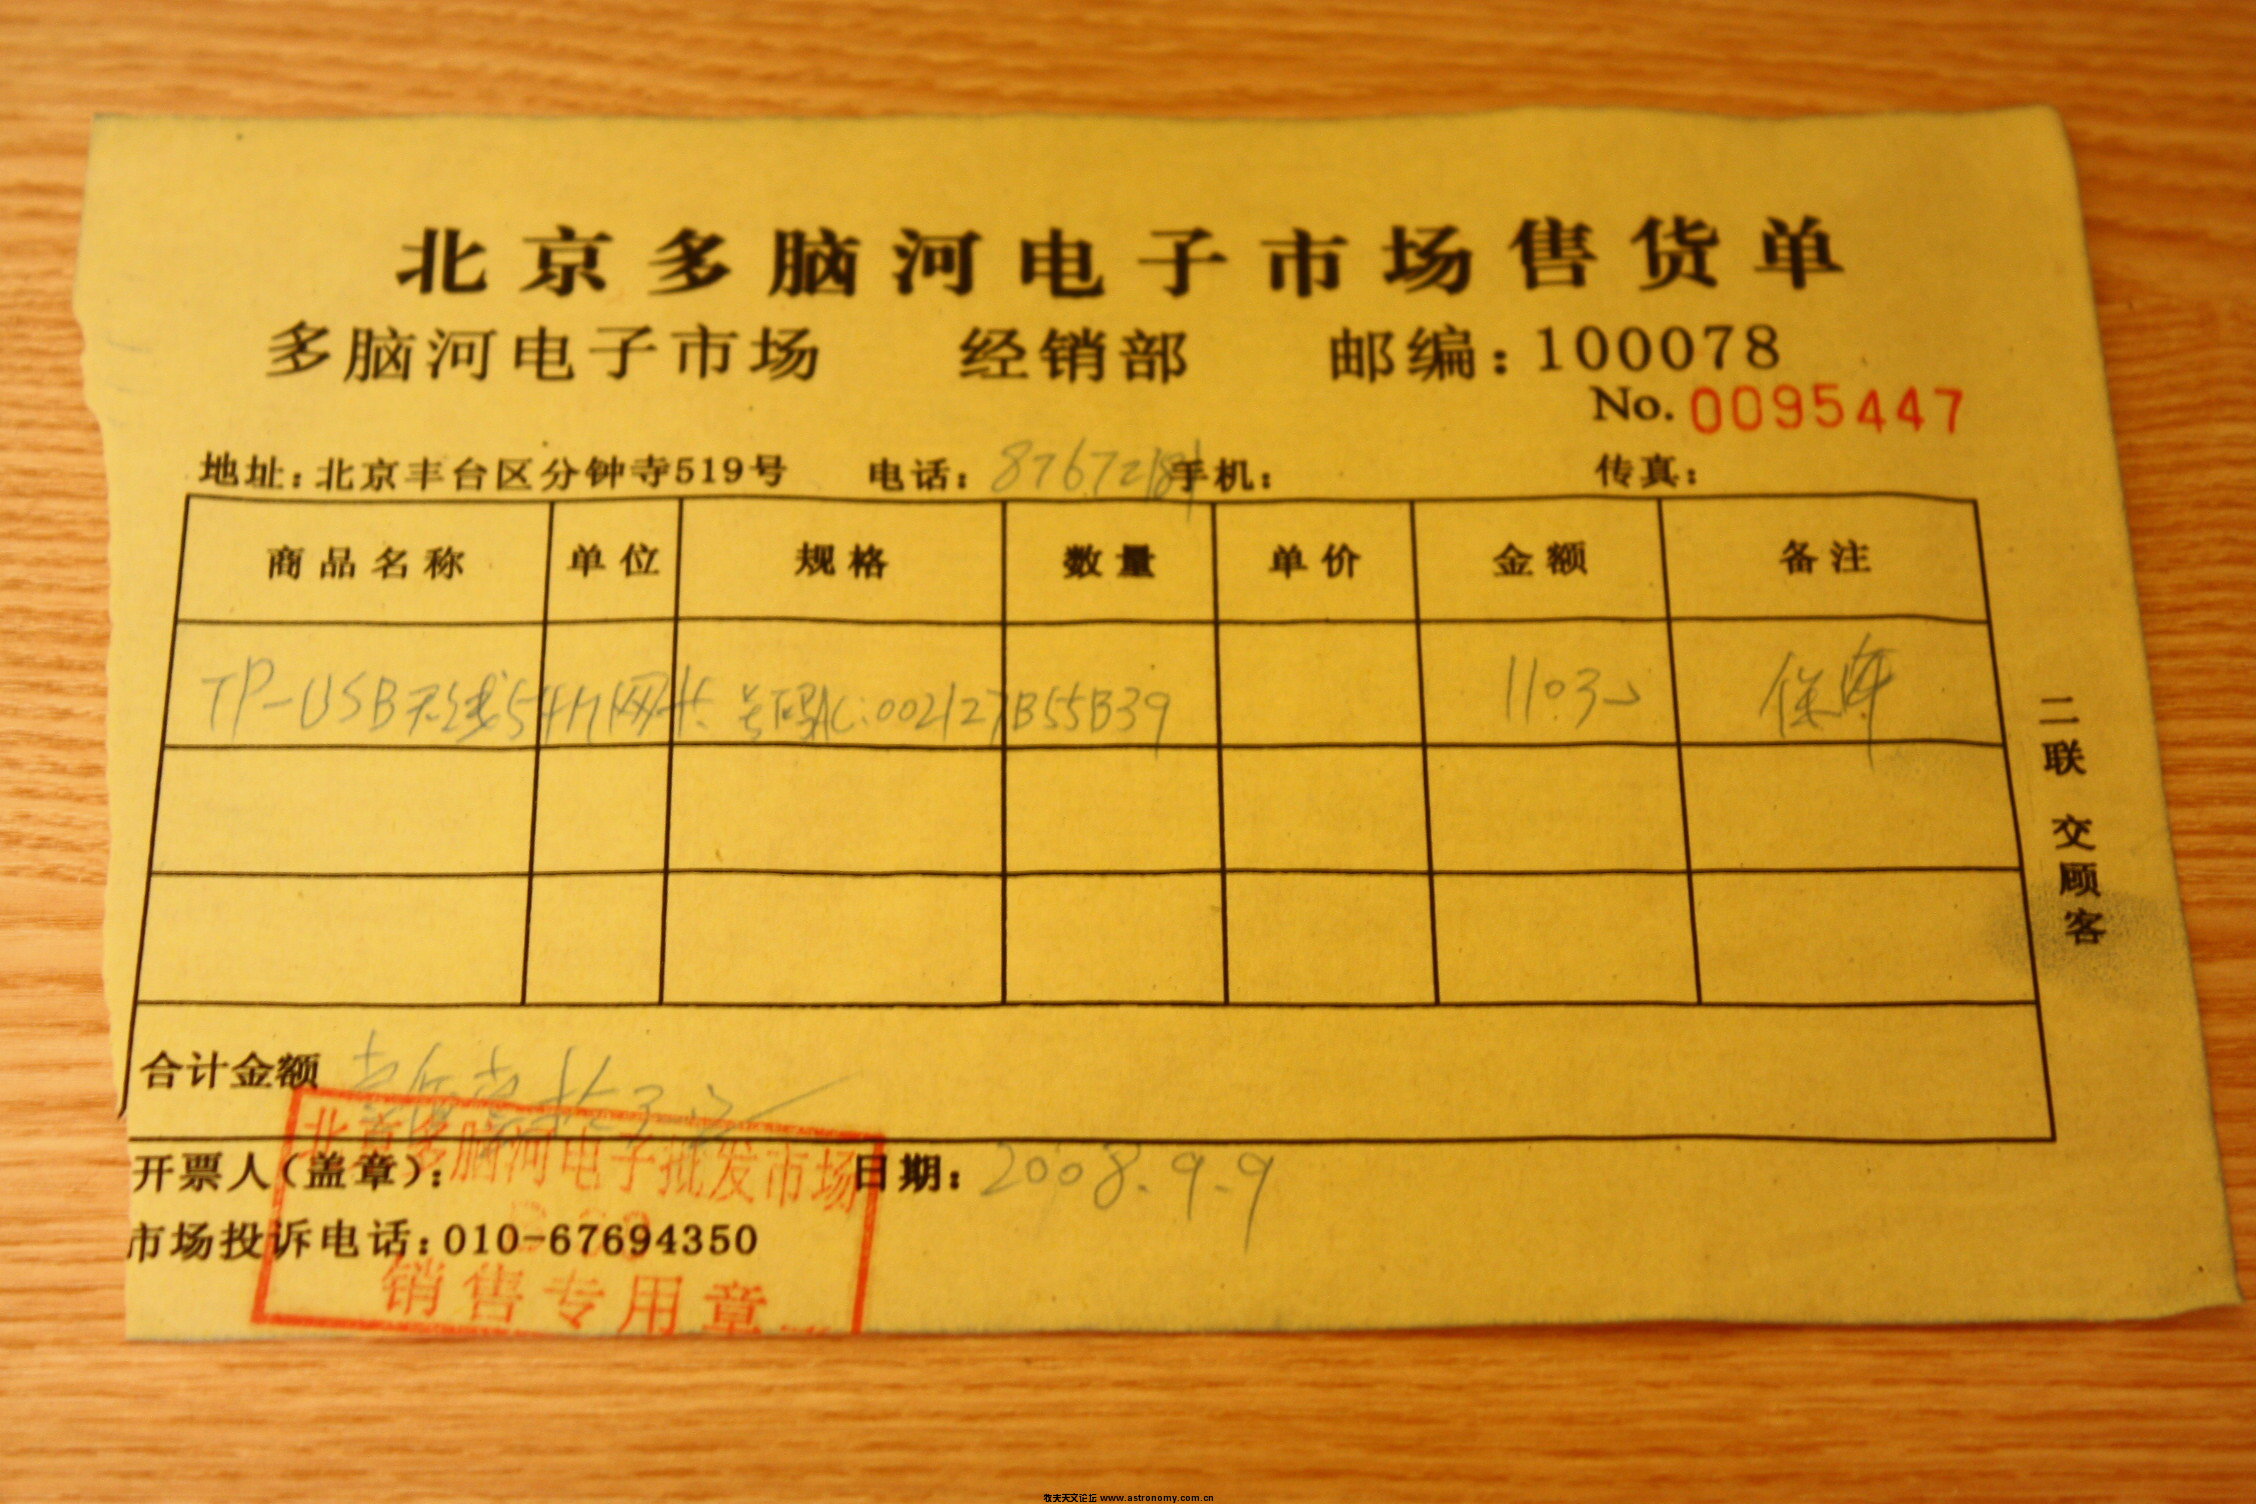 北京多脑河电子市场售货单
多脑河电子市场 经销部 邮编：100078
No. 0095447
地址：北京丰台区分钟寺519号 电话： 手机： 传真：
商品名称 单位 规格 数量 单价 金额 备注
TP-USB无线54M网卡 号码 002127B55B39 保
二联 交顾客
合计金额
开票人（盖章）： 日期：2008.9.9
市场投诉电话：010-67694350
北京多脑河电子批发市场
销售专用章
牧夫天文论坛 www.astronomy.com.cn